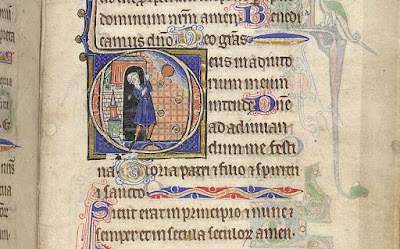 dominum nr̄m amen. Benedi
camus dn̄o. Deo grās.
Deus in adiuto
rium meum
intende. Dn̄e
ad adiuuan
dum me festi
na. Gloria patri ⁊ filio ⁊ spiritui
sancto
Sicut erat in principio ⁊ nunc ⁊
semper et in secula seculor amen.